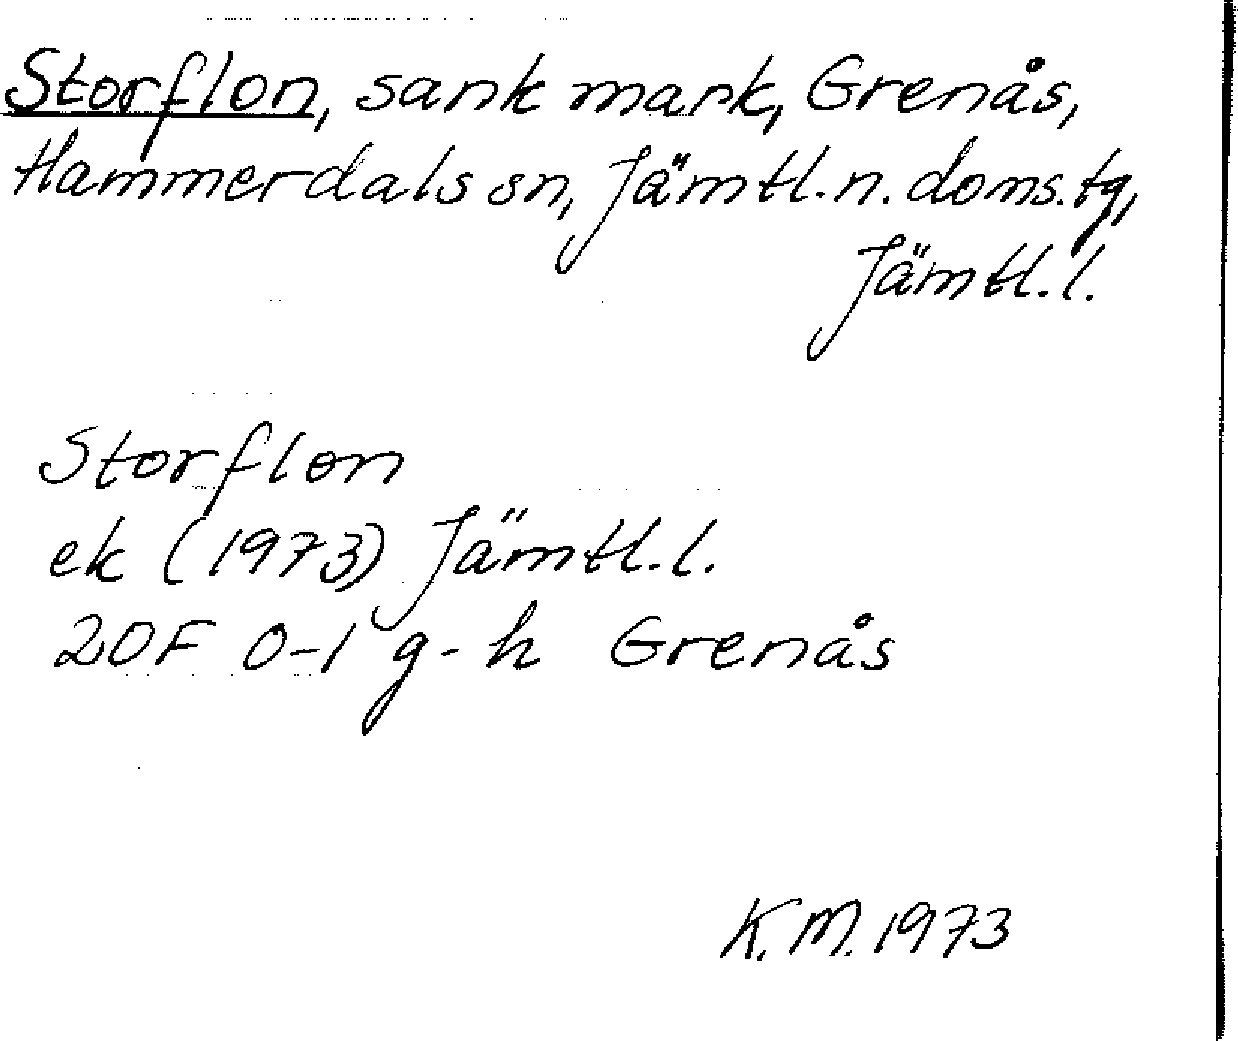 Storflon, sank mark, Grenås,
Hammerdals sn, Jämtl. n. doms. tg,
Jämtl. l.
Storflon
ek (1973) Jämtl. l.
20F 0-1 g-h Grenås
K. M. 1973